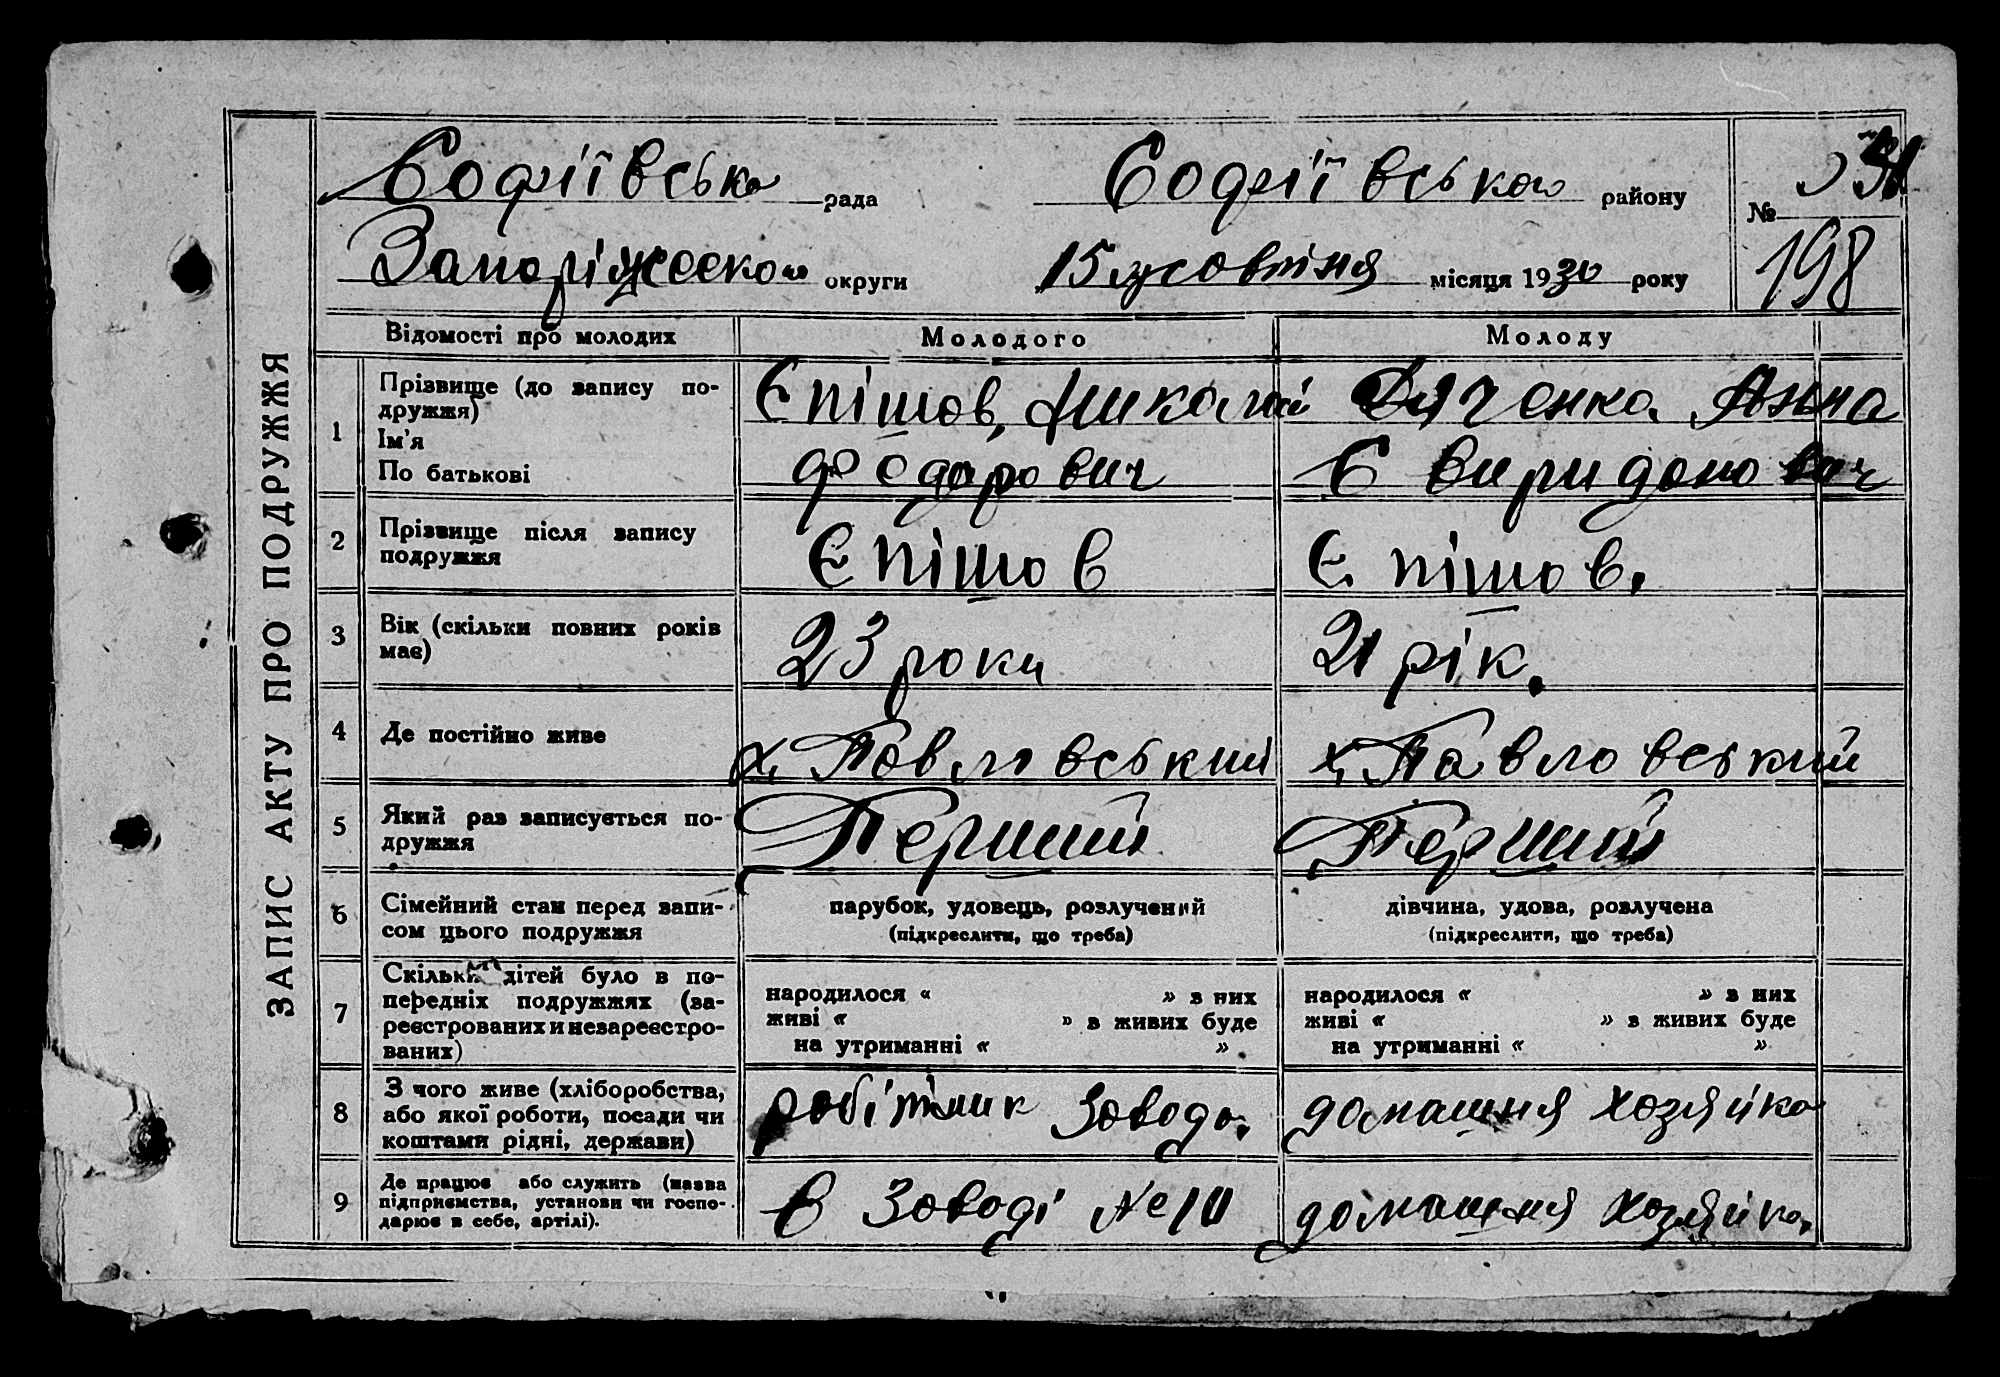 ЗАПИС АКТУ ПРО ПОДРУЖЖЯ
Софіївська рада Софіївсько району
№ 198
Запоріжсько округи 15 жовтня місяця 1930 року
Відомості про молодих Молодого Молоду
1 Прізвище (до запису по-
дружжя)
Ім'я
По батькові
Єпішов, Николай
Федорович
Дяченко Анна
Свиридонович
2 Прізвище після запису
подружжя
Єпішов
Єпішов.
3 Вік (скільки повних років
має)
23 роки
21 рік.
4 Де постійно живе
х. Павловський
х. Павловський
5 Який раз записується по-
дружжя
Перший
Перший
6 Сімейний стан перед запи-
сом цього подружжя
парубок, удовець, розлучений
(підкреслити, що треба)
дівчина, удова, розлучена
(підкреслити, що треба)
7 Скільки дітей було в по-
передніх подружжях (за-
реєстрованих и незареєстро-
ваних)
народилося « » з них
живі « » з живих буде
на утриманні « »
народилося « » з них
живі « » з живих буде
на утриманні « »
8 З чого живе (хліборобства,
або якої роботи, посади чи
коштами рідні, держави)
робітник завода.
домашня хозяйка
9 Де працює або служить (назва
підприємства, установи чи госпо-
дарює в себе, артілі).
в заводі №10
домашня хозяйка.